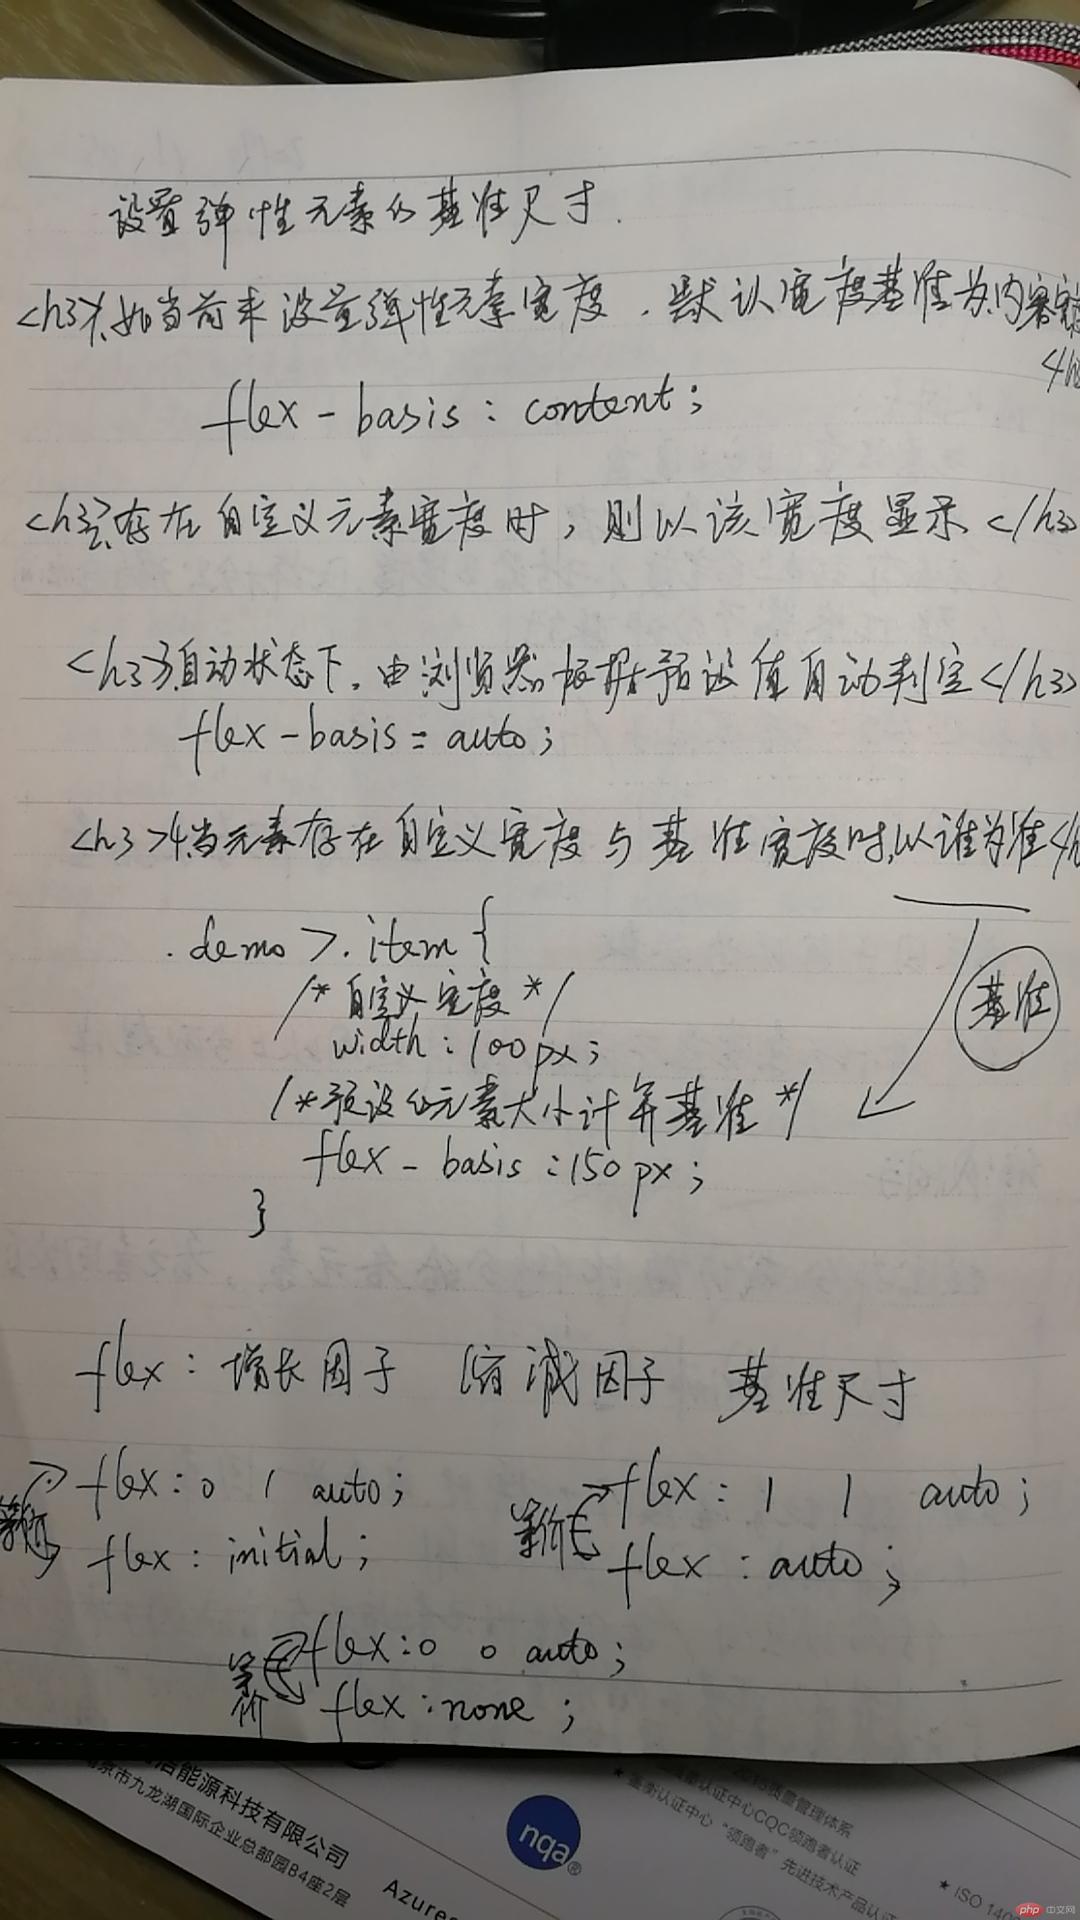 设置弹性元素的基准尺寸.
<h3>1.如当前未设置弹性元素宽度,默认宽度基准为内容宽
</h
flex-basis:content;
<h3>2.存在自定义元素宽度时,则以该宽度显示</h3>
<h3>3.自动状态下,由浏览器根据预设值自动判定</h3>
flex-basis=auto;
<h3>4.当元素存在自定义宽度与基准宽度时,以谁为准</h
.demo>.item{
基准
/*自定义宽度*/
width:100px;
/*预设的元素大小计算基准*/
flex-basis:150px;
}
flex:增长因子 缩减因子 基准尺寸
flex:0 1 auto;
等价
flex:initial;
flex:1 1 auto;
等价
flex:auto;
flex:0 0 auto;
等价
flex:none;
能源科技有限公司
京市九龙湖国际企业总部园B4座2层
Azure
nqa®
质量管理体系
认证中心CQC领跑者认证
★金衡认证中心“领跑者”先进技术产品认证
★ISO 140
php中文网